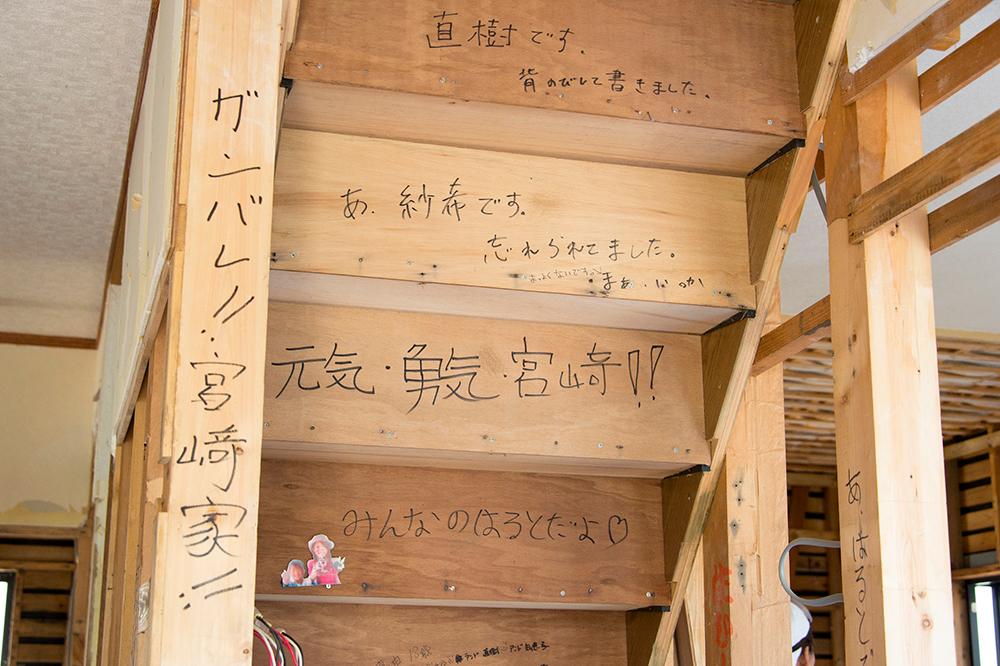 直樹です。
背のびして書きました。
ガンバレ!!宮﨑家!!
あ、紗希です。
忘れられてました。
まぁ、いっか
元気・勇気・宮﨑!!
みんなのはるとだよ♡
あ、はるとで